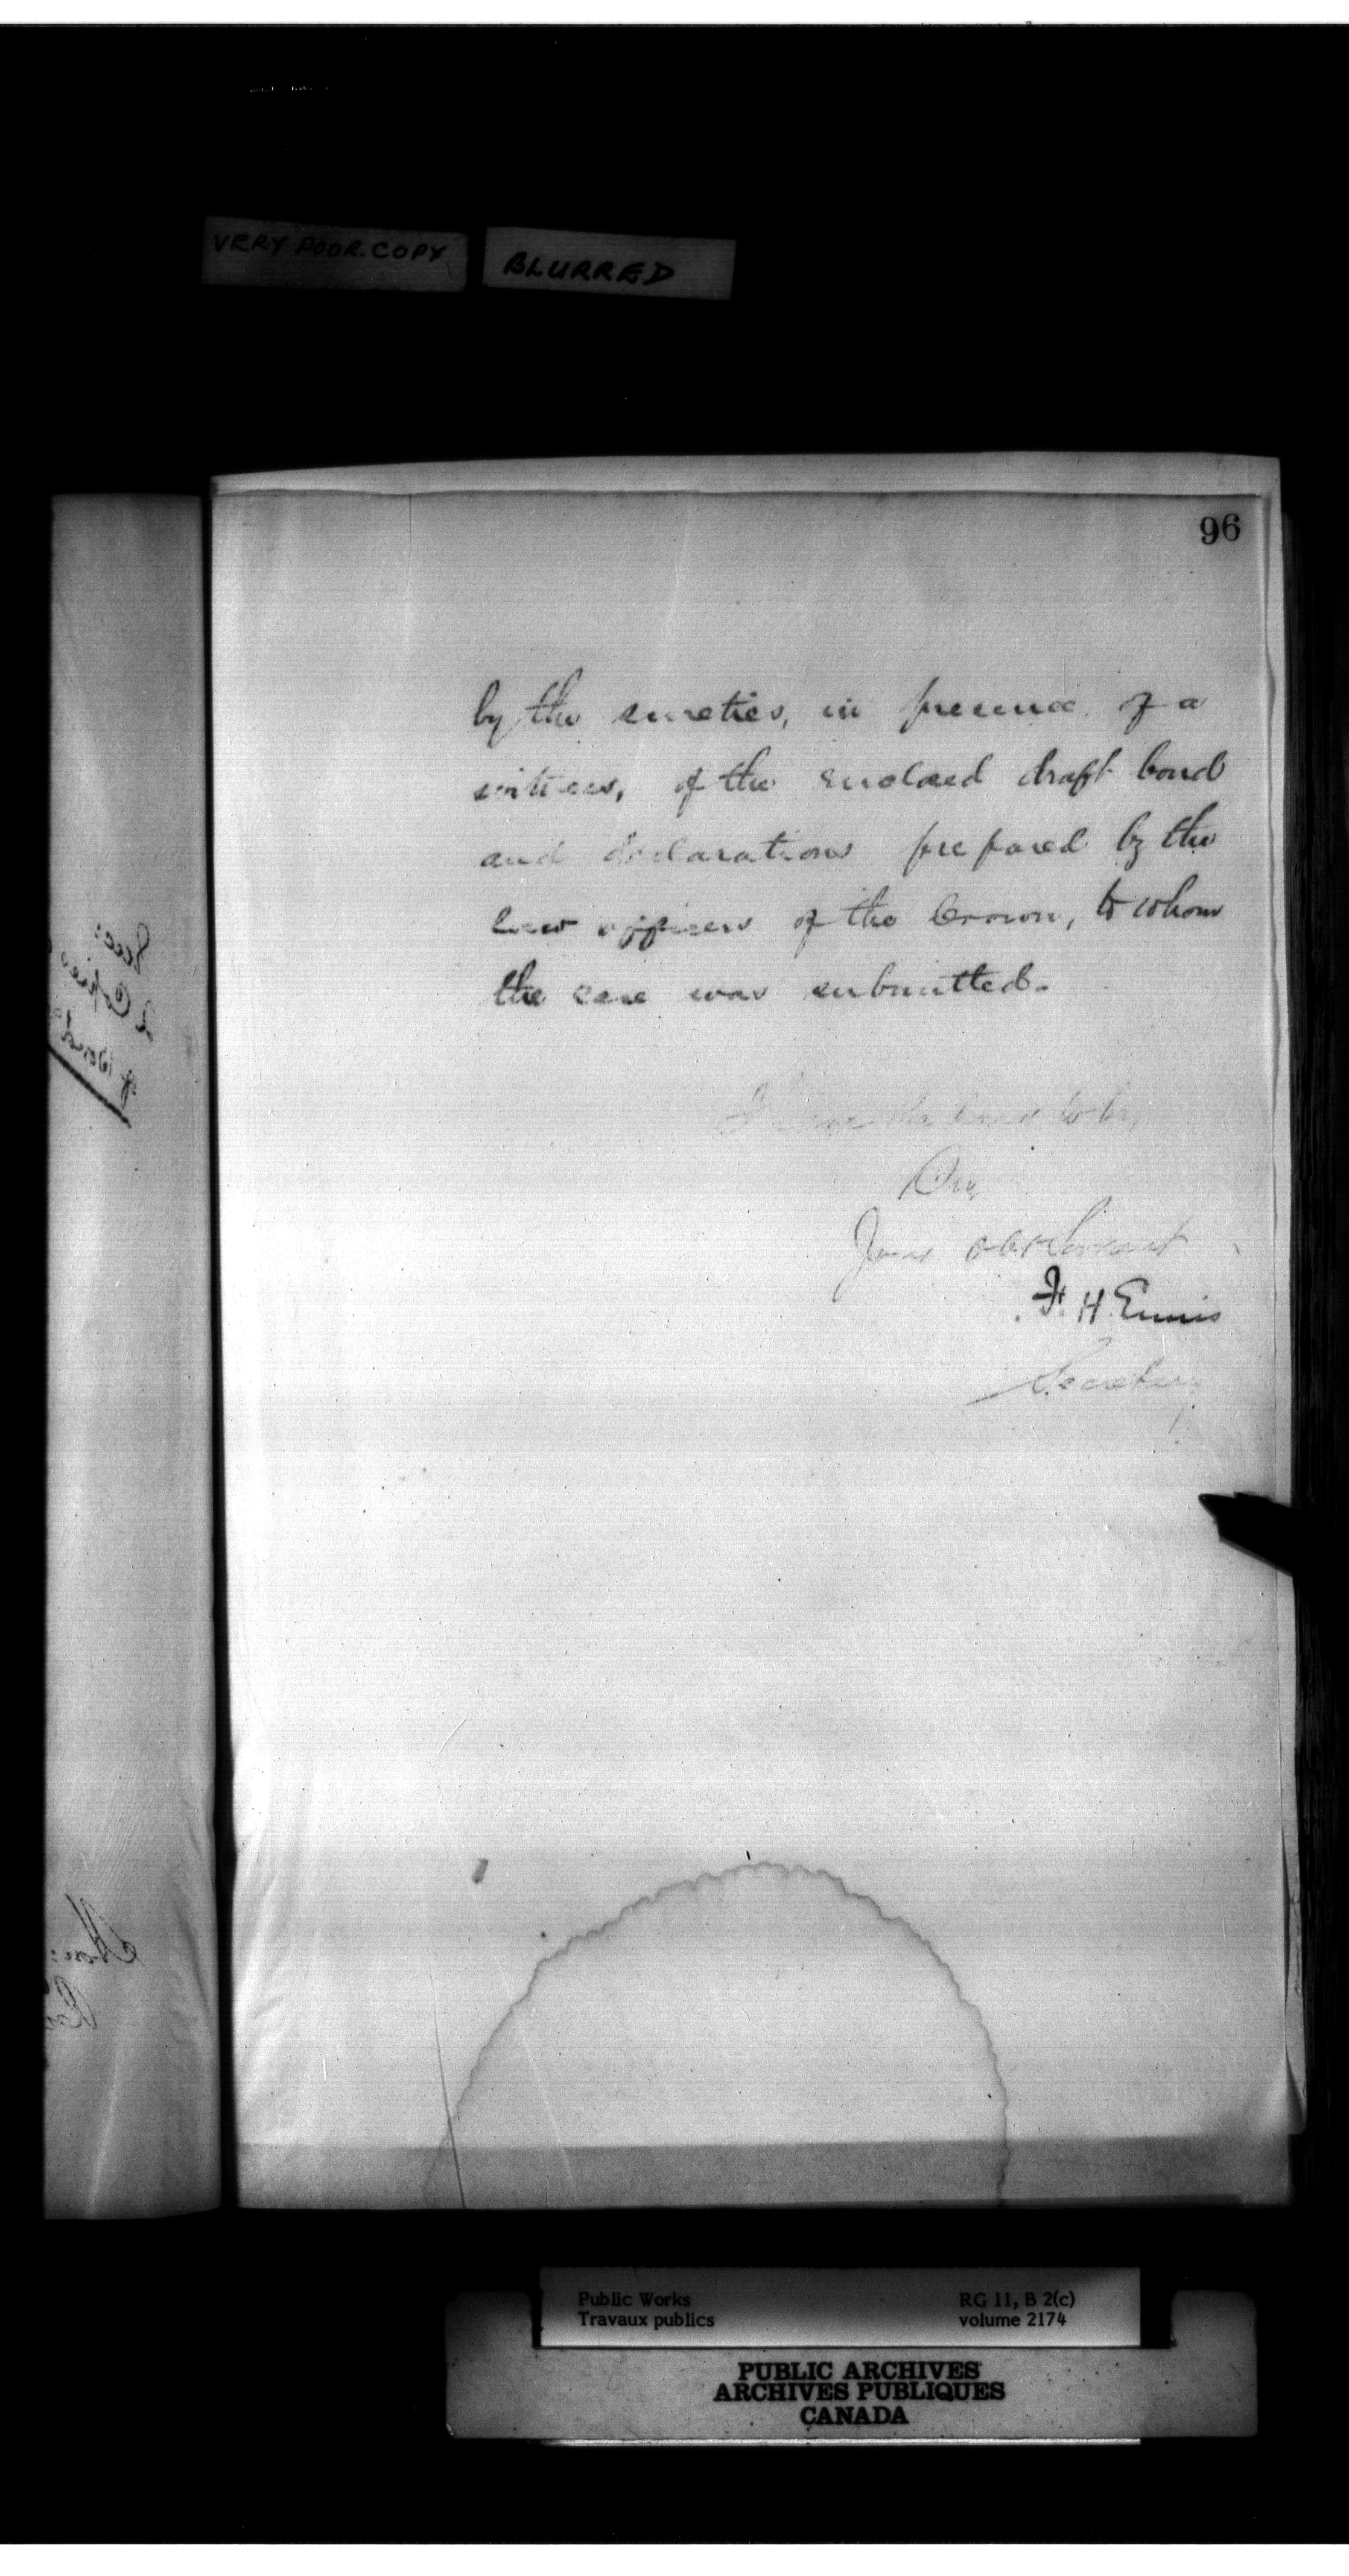 VERY POOR COPY
BLURRED
96
by the sureties, in presence of a
witness, of the enclosed draft bond
and declarations prepared by the
law officers of the Crown, to whom
the case was submitted.
I have the honor to be,
Sir,
Your obt Servant
F. H. Ennis
Secretary
Public Works
Travaux publics
RG 11, B 2(c)
volume 2174
PUBLIC ARCHIVES
ARCHIVES PUBLIQUES
CANADA